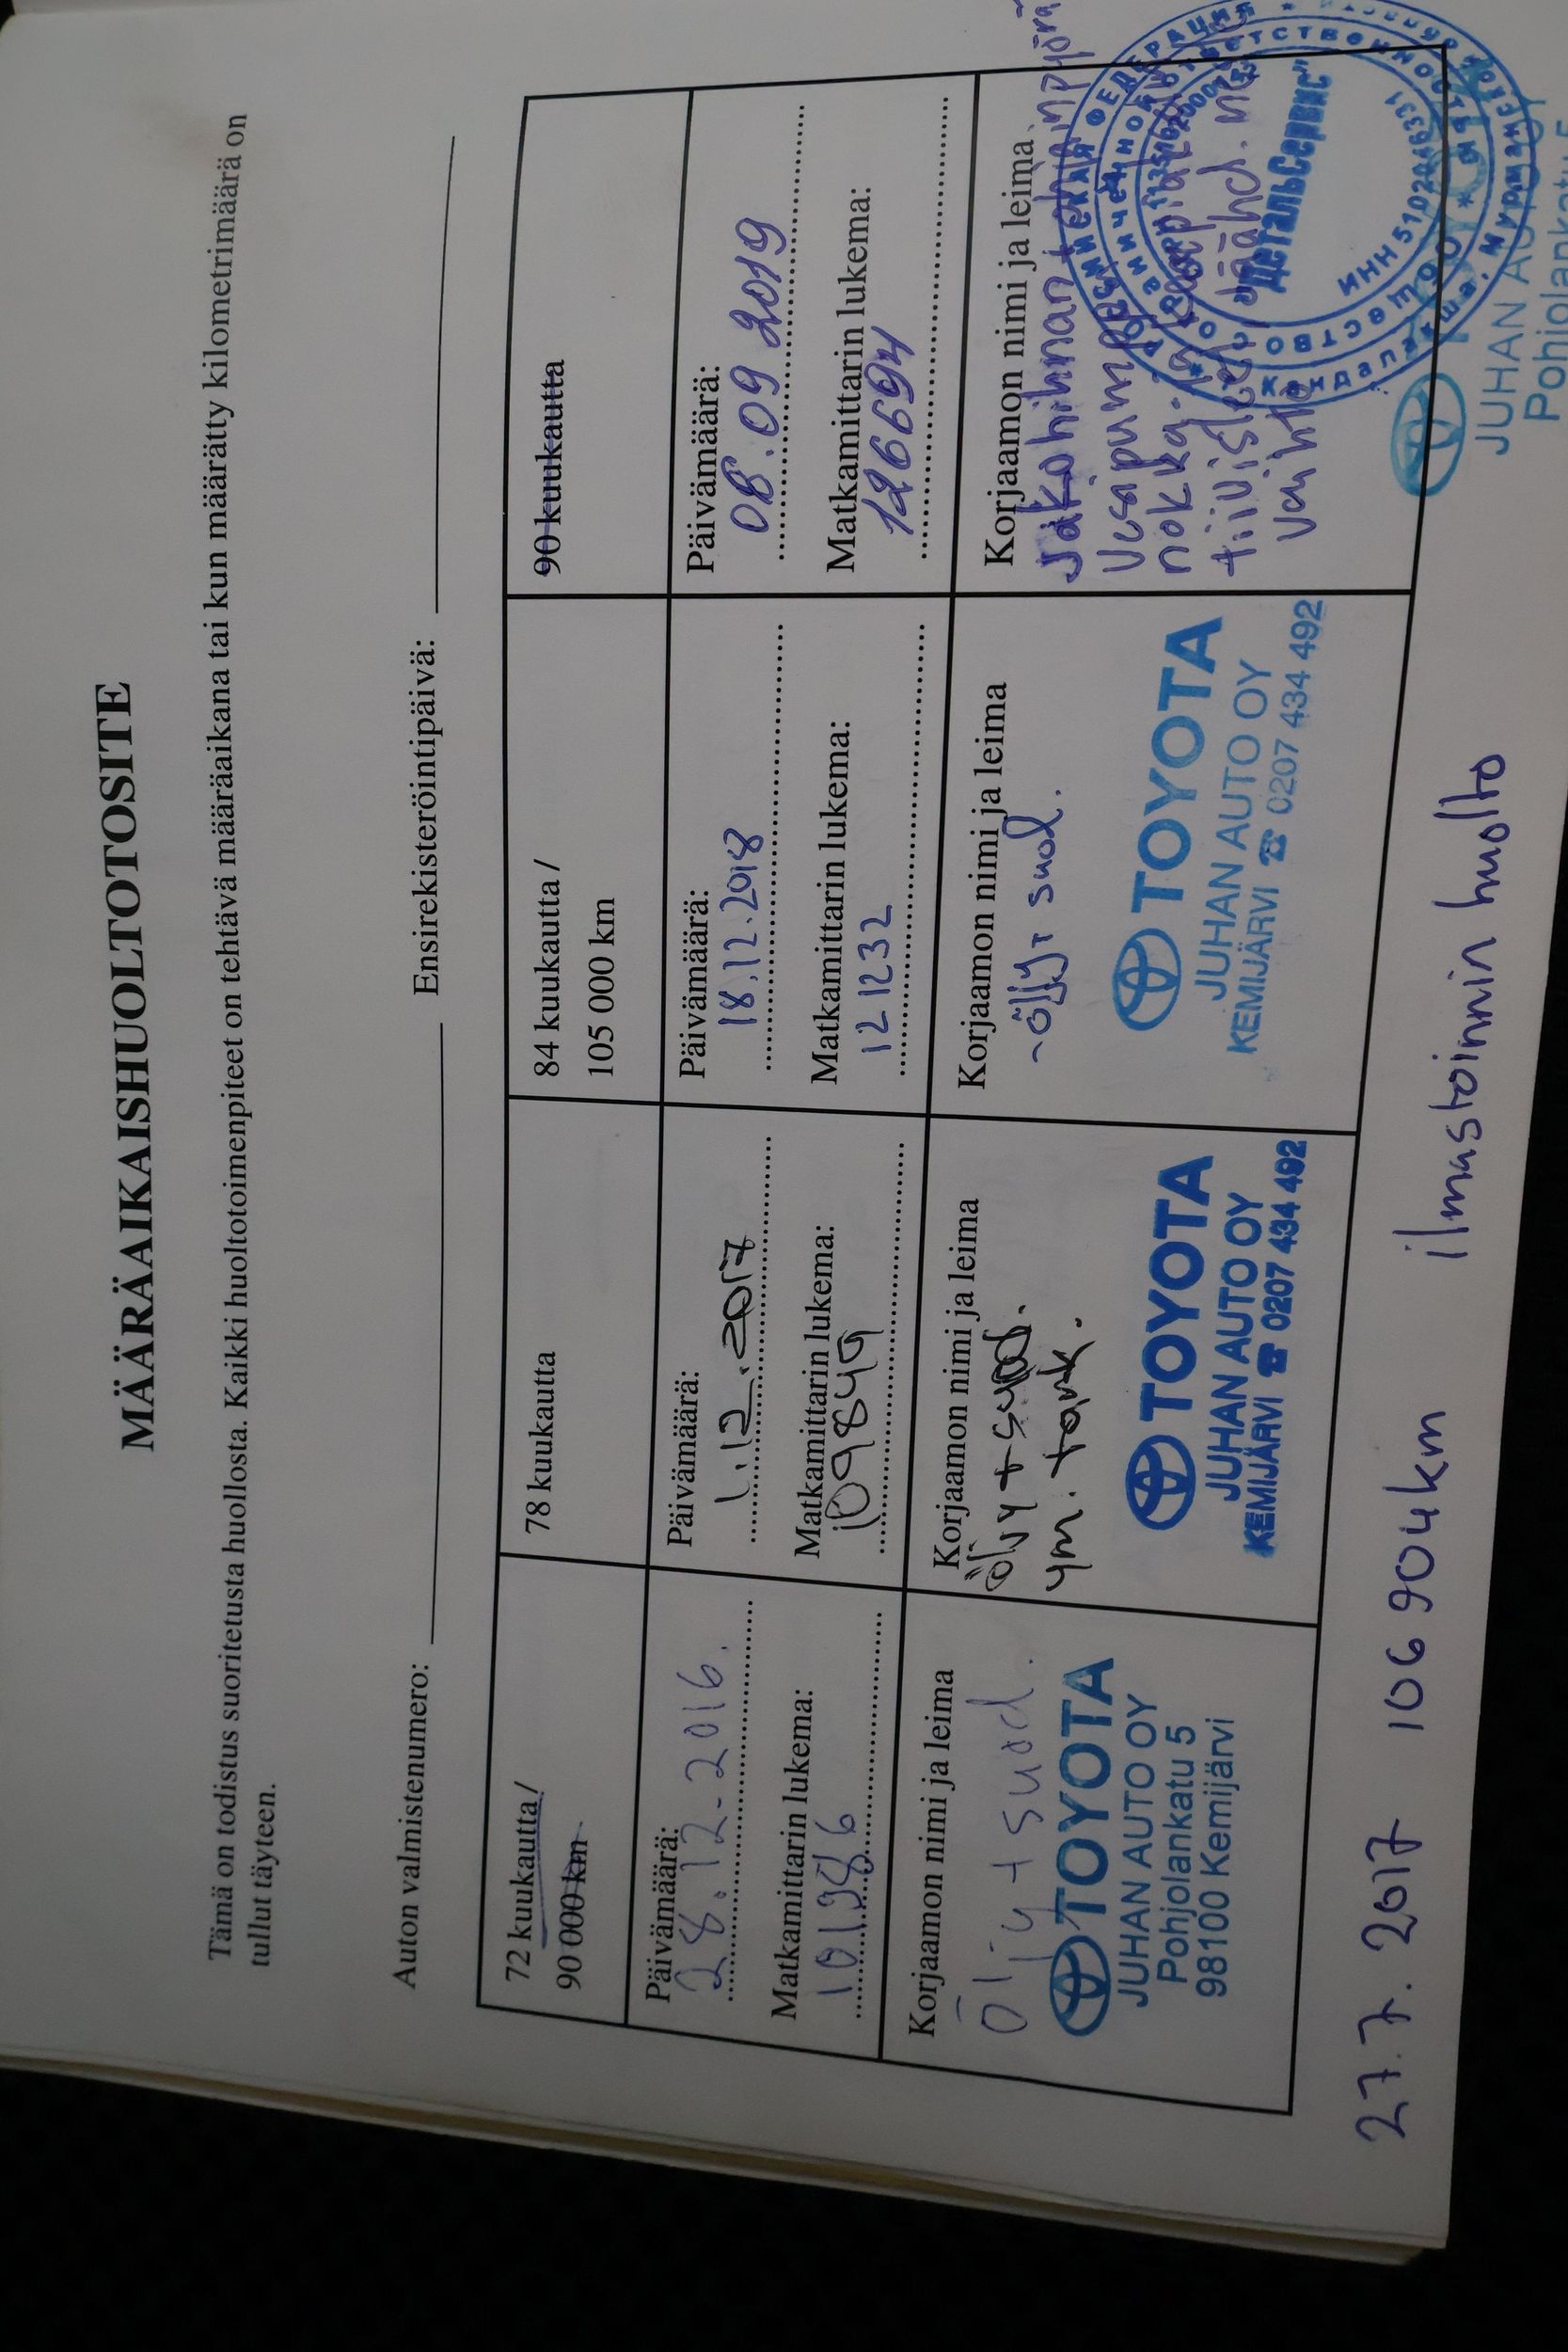 MÄÄRÄAIKAISHUOLTOTOSITE
Tämä on todistus suoritetusta huollosta. Kaikki huoltotoimenpiteet on tehtävä määräaikana tai kun määrätty kilometrimäärä on
tullut täyteen.
Auton valmistenumero:
Ensirekisteröintipäivä:
72 kuukautta/
90 000 km
Päivämäärä:
28.12.2016.
Matkamittarin lukema:
101986
Korjaamon nimi ja leima
Öljy + suod.
TOYOTA
JUHAN AUTO OY
Pohjolankatu 5
98100 Kemijärvi
78 kuukautta
Päivämäärä:
1.12.2017
Matkamittarin lukema:
109849
Korjaamon nimi ja leima
Öljy + suod.
ym. tark.
TOYOTA
JUHAN AUTO OY
KEMIJÄRVI ☎ 0207 434 492
84 kuukautta /
105 000 km
Päivämäärä:
18.12.2018
Matkamittarin lukema:
121232
Korjaamon nimi ja leima
- öljy + suod.
TOYOTA
JUHAN AUTO OY
KEMIJÄRVI ☎ 0207 434 492
90 kuukautta
Päivämäärä:
08.09 2019
Matkamittarin lukema:
126694
Korjaamon nimi ja leima
Jakohihnan
Vesipumppu
nokka
vaihto
РОССИЙСКАЯ ФЕДЕРАЦИЯ
"ДетальСервис"
ИНН 5102046331
JUHAN AUTO OY
Pohjolankatu 5
27.7. 2017 106 904 km ilmastoinnin huolto